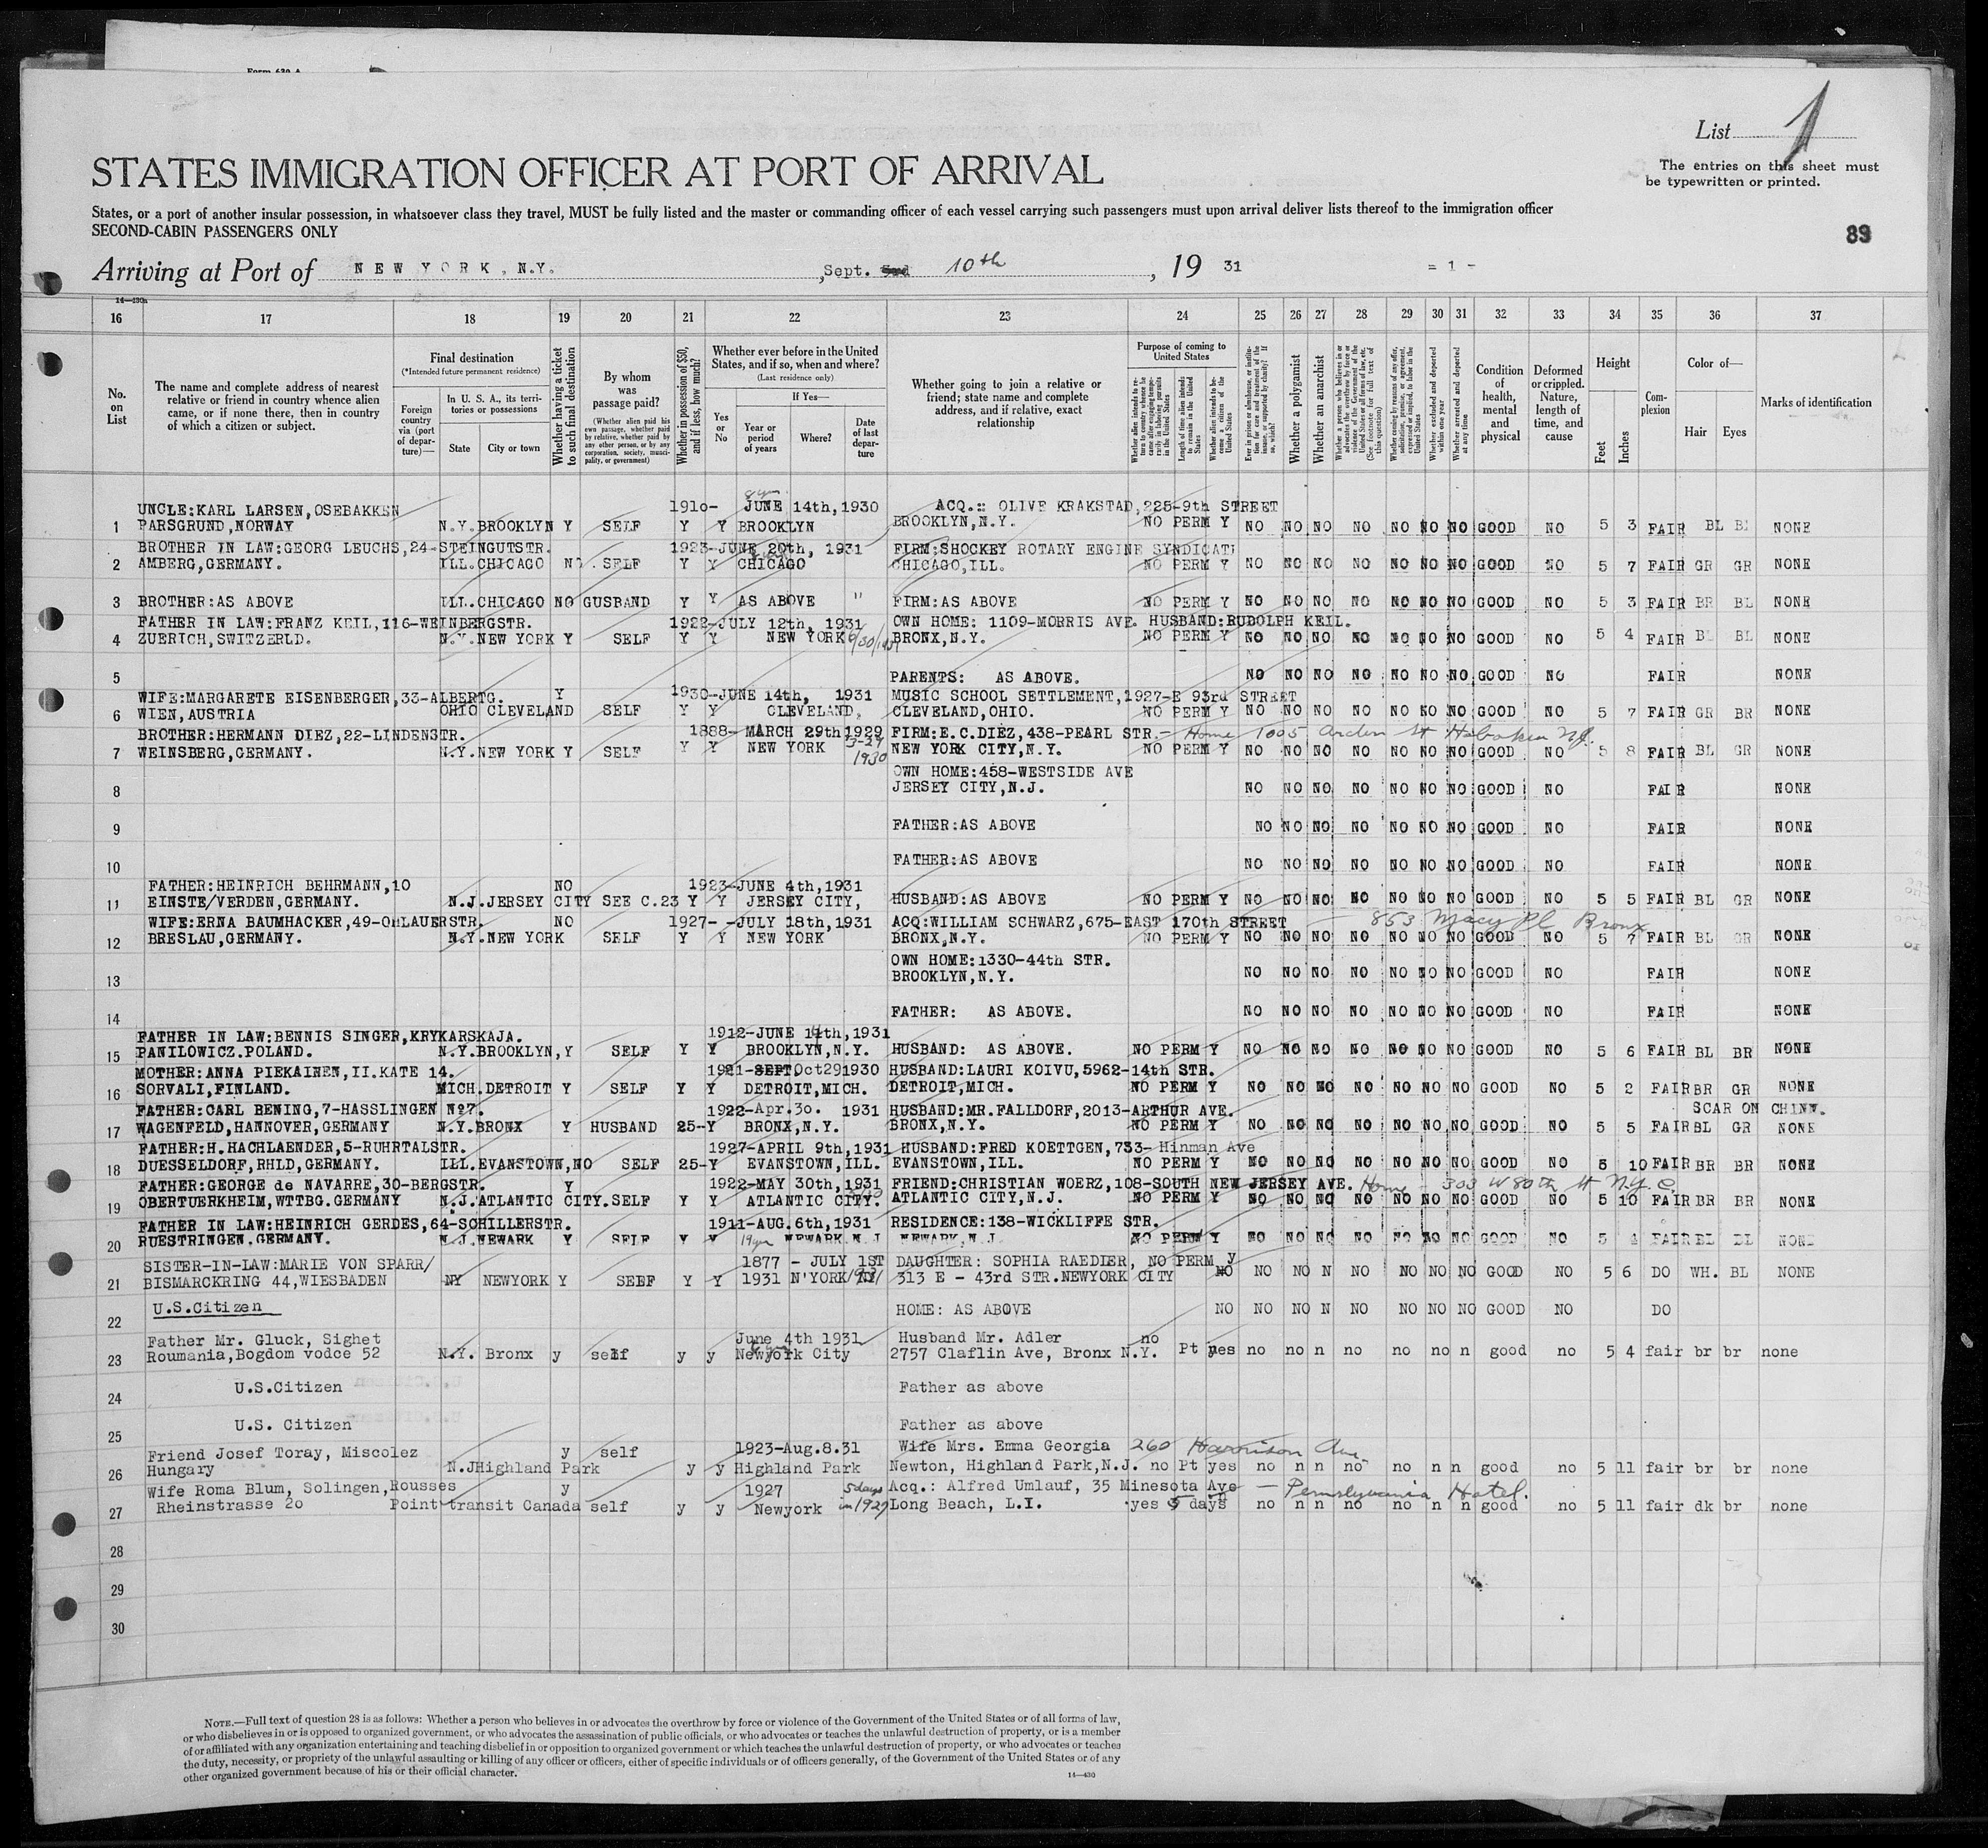 Form 630 A
List 1
The entries on this sheet must
be typewritten or printed.
STATES IMMIGRATION OFFICER AT PORT OF ARRIVAL
States, or a port of another insular possession, in whatsoever class they travel, MUST be fully listed and the master or commanding officer of each vessel carrying such passengers must upon arrival deliver lists thereof to the immigration officer
SECOND-CABIN PASSENGERS ONLY
89
Arriving at Port of NEW YORK, N.Y. , Sept. 3rd 10th , 19 31 = 1 -
14—430a
16 17 18 19 20 21 22 23 24 25 26 27 28 29 30 31 32 33 34 35 36 37
No. on List
The name and complete address of nearest relative or friend in country whence alien came, or if none there, then in country of which a citizen or subject.
Final destination
(*Intended future permanent residence)
Foreign country via (port of departure)—
In U. S. A., its territories or possessions
State
City or town
Whether having a ticket to such final destination
By whom was passage paid?
(Whether alien paid his own passage, whether paid by relative, whether paid by any other person, or by any corporation, society, municipality, or government)
Whether in possession of $50, and if less, how much?
Whether ever before in the United States, and if so, when and where?
(Last residence only)
Yes or No
If Yes—
Year or period of years
Where?
Date of last departure
Whether going to join a relative or friend; state name and complete address, and if relative, exact relationship
Purpose of coming to United States
Whether alien intends to return to country whence he came after engaging temporarily in laboring pursuits in the United States
Length of time alien intends to remain in the United States
Whether alien intends to become a citizen of the United States
Ever in prison or almshouse, or institution for care and treatment of the insane, or supported by charity? If so, which?
Whether a polygamist
Whether an anarchist
Whether a person who believes in or advocates the overthrow by force or violence of the Government of the United States or all forms of law, etc. (See footnote for full text of this question)
Whether coming by reasons of any offer, solicitation, promise, or agreement, expressed or implied, to labor in the United States
Whether excluded and deported within one year
Whether arrested and deported at any time
Condition of health, mental and physical
Deformed or crippled. Nature, length of time, and cause
Height
Feet Inches
Complexion
Color of—
Hair Eyes
Marks of identification
UNCLE:KARL LARSEN,OSEBAKKEN 1910- JUNE 14th,1930 ACQ.: OLIVE KRAKSTAD,225-9th STREET
1 PARSGRUND,NORWAY N.Y.BROOKLYN Y SELF Y Y BROOKLYN BROOKLYN,N.Y. NO PERM Y NO NO NO NO NO NO NO GOOD NO 5 3 FAIR BL BL NONE
BROTHER IN LAW:GEORG LEUCHS,24-STEINGUTSTR. 1923-JUNE 20th, 1931 FIRM:SHOCKEY ROTARY ENGINE SYNDICATE
2 AMBERG,GERMANY. ILL.CHICAGO NO. SELF Y Y CHICAGO CHICAGO,ILL. NO PERM Y NO NO NO NO NO NO NO GOOD NO 5 7 FAIR GR GR NONE
3 BROTHER:AS ABOVE ILL.CHICAGO NO GUSBAND Y Y AS ABOVE " FIRM:AS ABOVE NO PERM Y NO NO NO NO NO NO NO GOOD NO 5 3 FAIR BR BL NONE
FATHER IN LAW:FRANZ KEIL,116-WEINBERGSTR. 1922-JULY 12th, 1931 OWN HOME: 1109-MORRIS AVE. HUSBAND:RUDOLPH KEIL.
4 ZUERICH,SWITZERLD. N.Y.NEW YORK Y SELF Y Y NEW YORK 6/30/1931 BRONX,N.Y. NO PERM Y NO NO NO NO NO NO NO GOOD NO 5 4 FAIR BL BL NONE
5 PARENTS: AS ABOVE. NO NO NO NO NO NO NO GOOD NO FAIR NONE
WIFE:MARGARETE EISENBERGER,33-ALBERTG. Y 1930-JUNE 14th, 1931 MUSIC SCHOOL SETTLEMENT,1927-E 93rd STREET
6 WIEN,AUSTRIA OHIO CLEVELAND SELF Y Y CLEVELAND, CLEVELAND,OHIO. NO PERM Y NO NO NO NO NO NO NO GOOD NO 5 7 FAIR GR BR NONE
BROTHER:HERMANN DIEZ,22-LINDENSTR. 1888- MARCH 29th,1929 FIRM:E.C.DIEZ,438-PEARL STR.- Home 1005 Arden St Hoboken N.J.
7 WEINSBERG,GERMANY. N.Y.NEW YORK Y SELF Y Y NEW YORK 3-29 1930 NEW YORK CITY,N.Y. NO PERM Y NO NO NO NO NO NO NO GOOD NO 5 8 FAIR BL GR NONE
OWN HOME:458-WESTSIDE AVE
8 JERSEY CITY,N.J. NO NO NO NO NO NO NO GOOD NO FAIR NONE
9 FATHER:AS ABOVE NO NO NO NO NO NO NO GOOD NO FAIR NONE
10 FATHER:AS ABOVE NO NO NO NO NO NO NO GOOD NO FAIR NONE
FATHER:HEINRICH BEHRMANN,10 NO 1923-JUNE 4th,1931
11 EINSTE/VERDEN,GERMANY. N.J.JERSEY CITY SEE C.23 Y Y JERSEY CITY, HUSBAND:AS ABOVE NO PERM Y NO NO NO NO NO NO NO GOOD NO 5 5 FAIR BL GR NONE
WIFE:ERNA BAUMHACKER,49-OHLAUERSTR. NO 1927- -JULY 18th,1931 ACQ:WILLIAM SCHWARZ,675-EAST 170th STREET 853 Macy Pl Bronx
12 BRESLAU,GERMANY. N.Y.NEW YORK SELF Y Y NEW YORK BRONX,N.Y. NO PERM Y NO NO NO NO NO NO NO GOOD NO 5 7 FAIR BL GR NONE
OWN HOME:1330-44th STR.
13 BROOKLYN,N.Y. NO NO NO NO NO NO NO GOOD NO FAIR NONE
14 FATHER: AS ABOVE. NO NO NO NO NO NO NO GOOD NO FAIR NONE
FATHER IN LAW:BENNIS SINGER,KRYKARSKAJA. 1912-JUNE 11th,1931
15 PANILOWICZ.POLAND. N.Y.BROOKLYN,Y SELF Y Y BROOKLYN,N.Y. HUSBAND: AS ABOVE. NO PERM Y NO NO NO NO NO NO NO GOOD NO 5 6 FAIR BL BR NONE
MOTHER:ANNA PIEKAINEN,II.KATE 14. 1921-SEPT.Oct291930 HUSBAND:LAURI KOIVU,5962-14th STR.
16 SORVALI,FINLAND. MICH.DETROIT Y SELF Y Y DETROIT,MICH. DETROIT,MICH. NO PERM Y NO NO NO NO NO NO NO GOOD NO 5 2 FAIR BR GR NONE
FATHER:CARL BENING,7-HASSLINGEN No7. 1922-Apr.30. 1931 HUSBAND:MR.FALLDORF,2013-ARTHUR AVE. SCAR ON CHINN.
17 WAGENFELD,HANNOVER,GERMANY N.Y.BRONX Y HUSBAND 25-Y BRONX,N.Y. BRONX,N.Y. NO PERM Y NO NO NO NO NO NO NO GOOD NO 5 5 FAIR BL GR NONE
FATHER:H.HACHLAENDER,5-RUHRTALSTR. 1927-APRIL 9th,1931 HUSBAND:FRED KOETTGEN,733- Hinman Ave
18 DUESSELDORF,RHLD,GERMANY. ILL.EVANSTOWN,NO SELF 25-Y EVANSTOWN,ILL. EVANSTOWN,ILL. NO PERM Y NO NO NO NO NO NO NO GOOD NO 5 10 FAIR BR BR NONE
FATHER:GEORGE de NAVARRE,30-BERGSTR. Y 1922-MAY 30th,1931 FRIEND:CHRISTIAN WOERZ,108-SOUTH NEW JERSEY AVE. Home - 303 W 80th St N.Y.C.
19 OBERTUERKHEIM,WTTBG.GERMANY N.J.ATLANTIC CITY.SELF Y Y ATLANTIC CITY. ATLANTIC CITY,N.J. NO PERM Y NO NO NO NO NO NO NO GOOD NO 5 10 FAIR BR BR NONE
FATHER IN LAW:HEINRICH GERDES,64-SCHILLERSTR. 1911-AUG.6th,1931 RESIDENCE:138-WICKLIFFE STR.
20 RUESTRINGEN.GERMANY. N.J.NEWARK Y SELF Y Y NEWARK N.J NEWARK,N.J. NO PERM Y NO NO NO NO NO NO NO GOOD NO 5 4 FAIR BL BL NONE
SISTER-IN-LAW:MARIE VON SPARR/ 1877 - JULY 1ST DAUGHTER: SOPHIA RAEDIER, NO PERM y
21 BISMARCKRING 44,WIESBADEN NY NEWYORK Y SELF Y Y 1931 N'YORK NY 313 E - 43rd STR.NEWYORK CITY NO NO NO N NO NO NO NO GOOD NO 5 6 DO WH. BL NONE
22 U.S.Citizen HOME: AS ABOVE NO NO NO N NO NO NO NO GOOD NO DO
Father Mr. Gluck, Sighet June 4th 1931 Husband Mr. Adler no
23 Roumania,Bogdom vodce 52 N.Y. Bronx y self y y Newyork City 2757 Claflin Ave, Bronx N.Y. Pt yes no no n no no no n good no 5 4 fair br br none
24 U.S.Citizen Father as above
25 U.S. Citizen Father as above
Friend Josef Toray, Miscolez y self 1923-Aug.8.31 Wife Mrs. Emma Georgia 260 Harrison Ave
26 Hungary N.JHighland Park y y Highland Park Newton, Highland Park,N.J. no Pt yes no n n no no n n good no 5 11 fair br br none
Wife Roma Blum, Solingen,Rousses y 1927 5 days Acq.: Alfred Umlauf, 35 Minesota Ave — Pennsylvania Hotel.
27 Rheinstrasse 20 Point transit Canada self y y Newyork in 1927 Long Beach, L.I. yes 5 days no n n no no n n good no 5 11 fair dk br none
28
29
30
NOTE.—Full text of question 28 is as follows: Whether a person who believes in or advocates the overthrow by force or violence of the Government of the United States or of all forms of law,
or who disbelieves in or is opposed to organized government, or who advocates the assassination of public officials, or who advocates or teaches the unlawful destruction of property, or is a member
of or affiliated with any organization entertaining and teaching disbelief in or opposition to organized government or which teaches the unlawful destruction of property, or who advocates or teaches
the duty, necessity, or propriety of the unlawful assaulting or killing of any officer or officers, either of specific individuals or of officers generally, of the Government of the United States or of any
other organized government because of his or their official character.
14—430